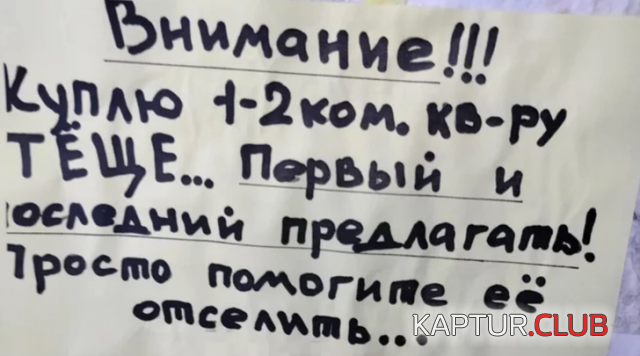 Внимание!!!
Куплю 1-2 ком. кв-ру
ТЁЩЕ... Первый и
последний предлагать!
Просто помогите её
отселить...
KAPTUR.CLUB